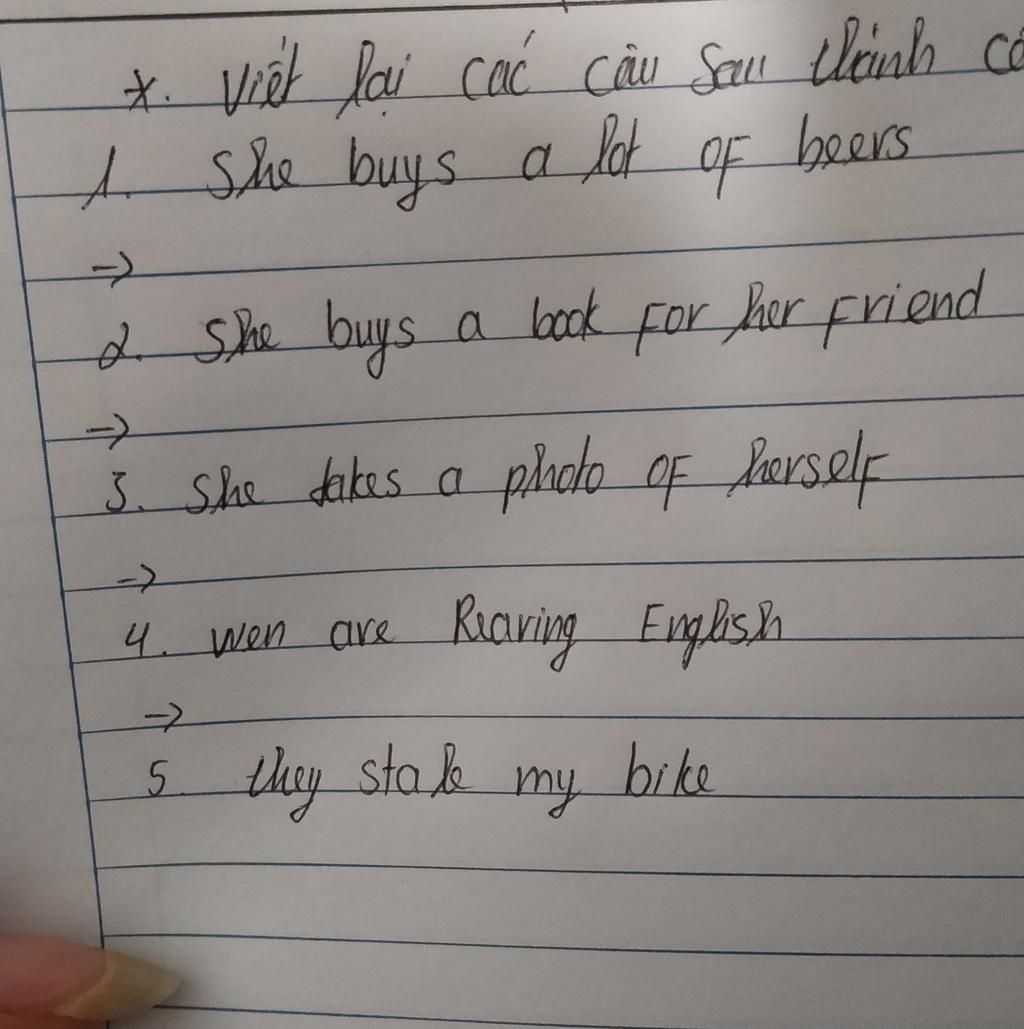 *. Viết lại các câu sau thành câ
1. She buys a lot of beers
→
2. She buys a book for her friend
→
3. She takes a photo of herself
→
4. wen are learing English
→
5. they stale my bike